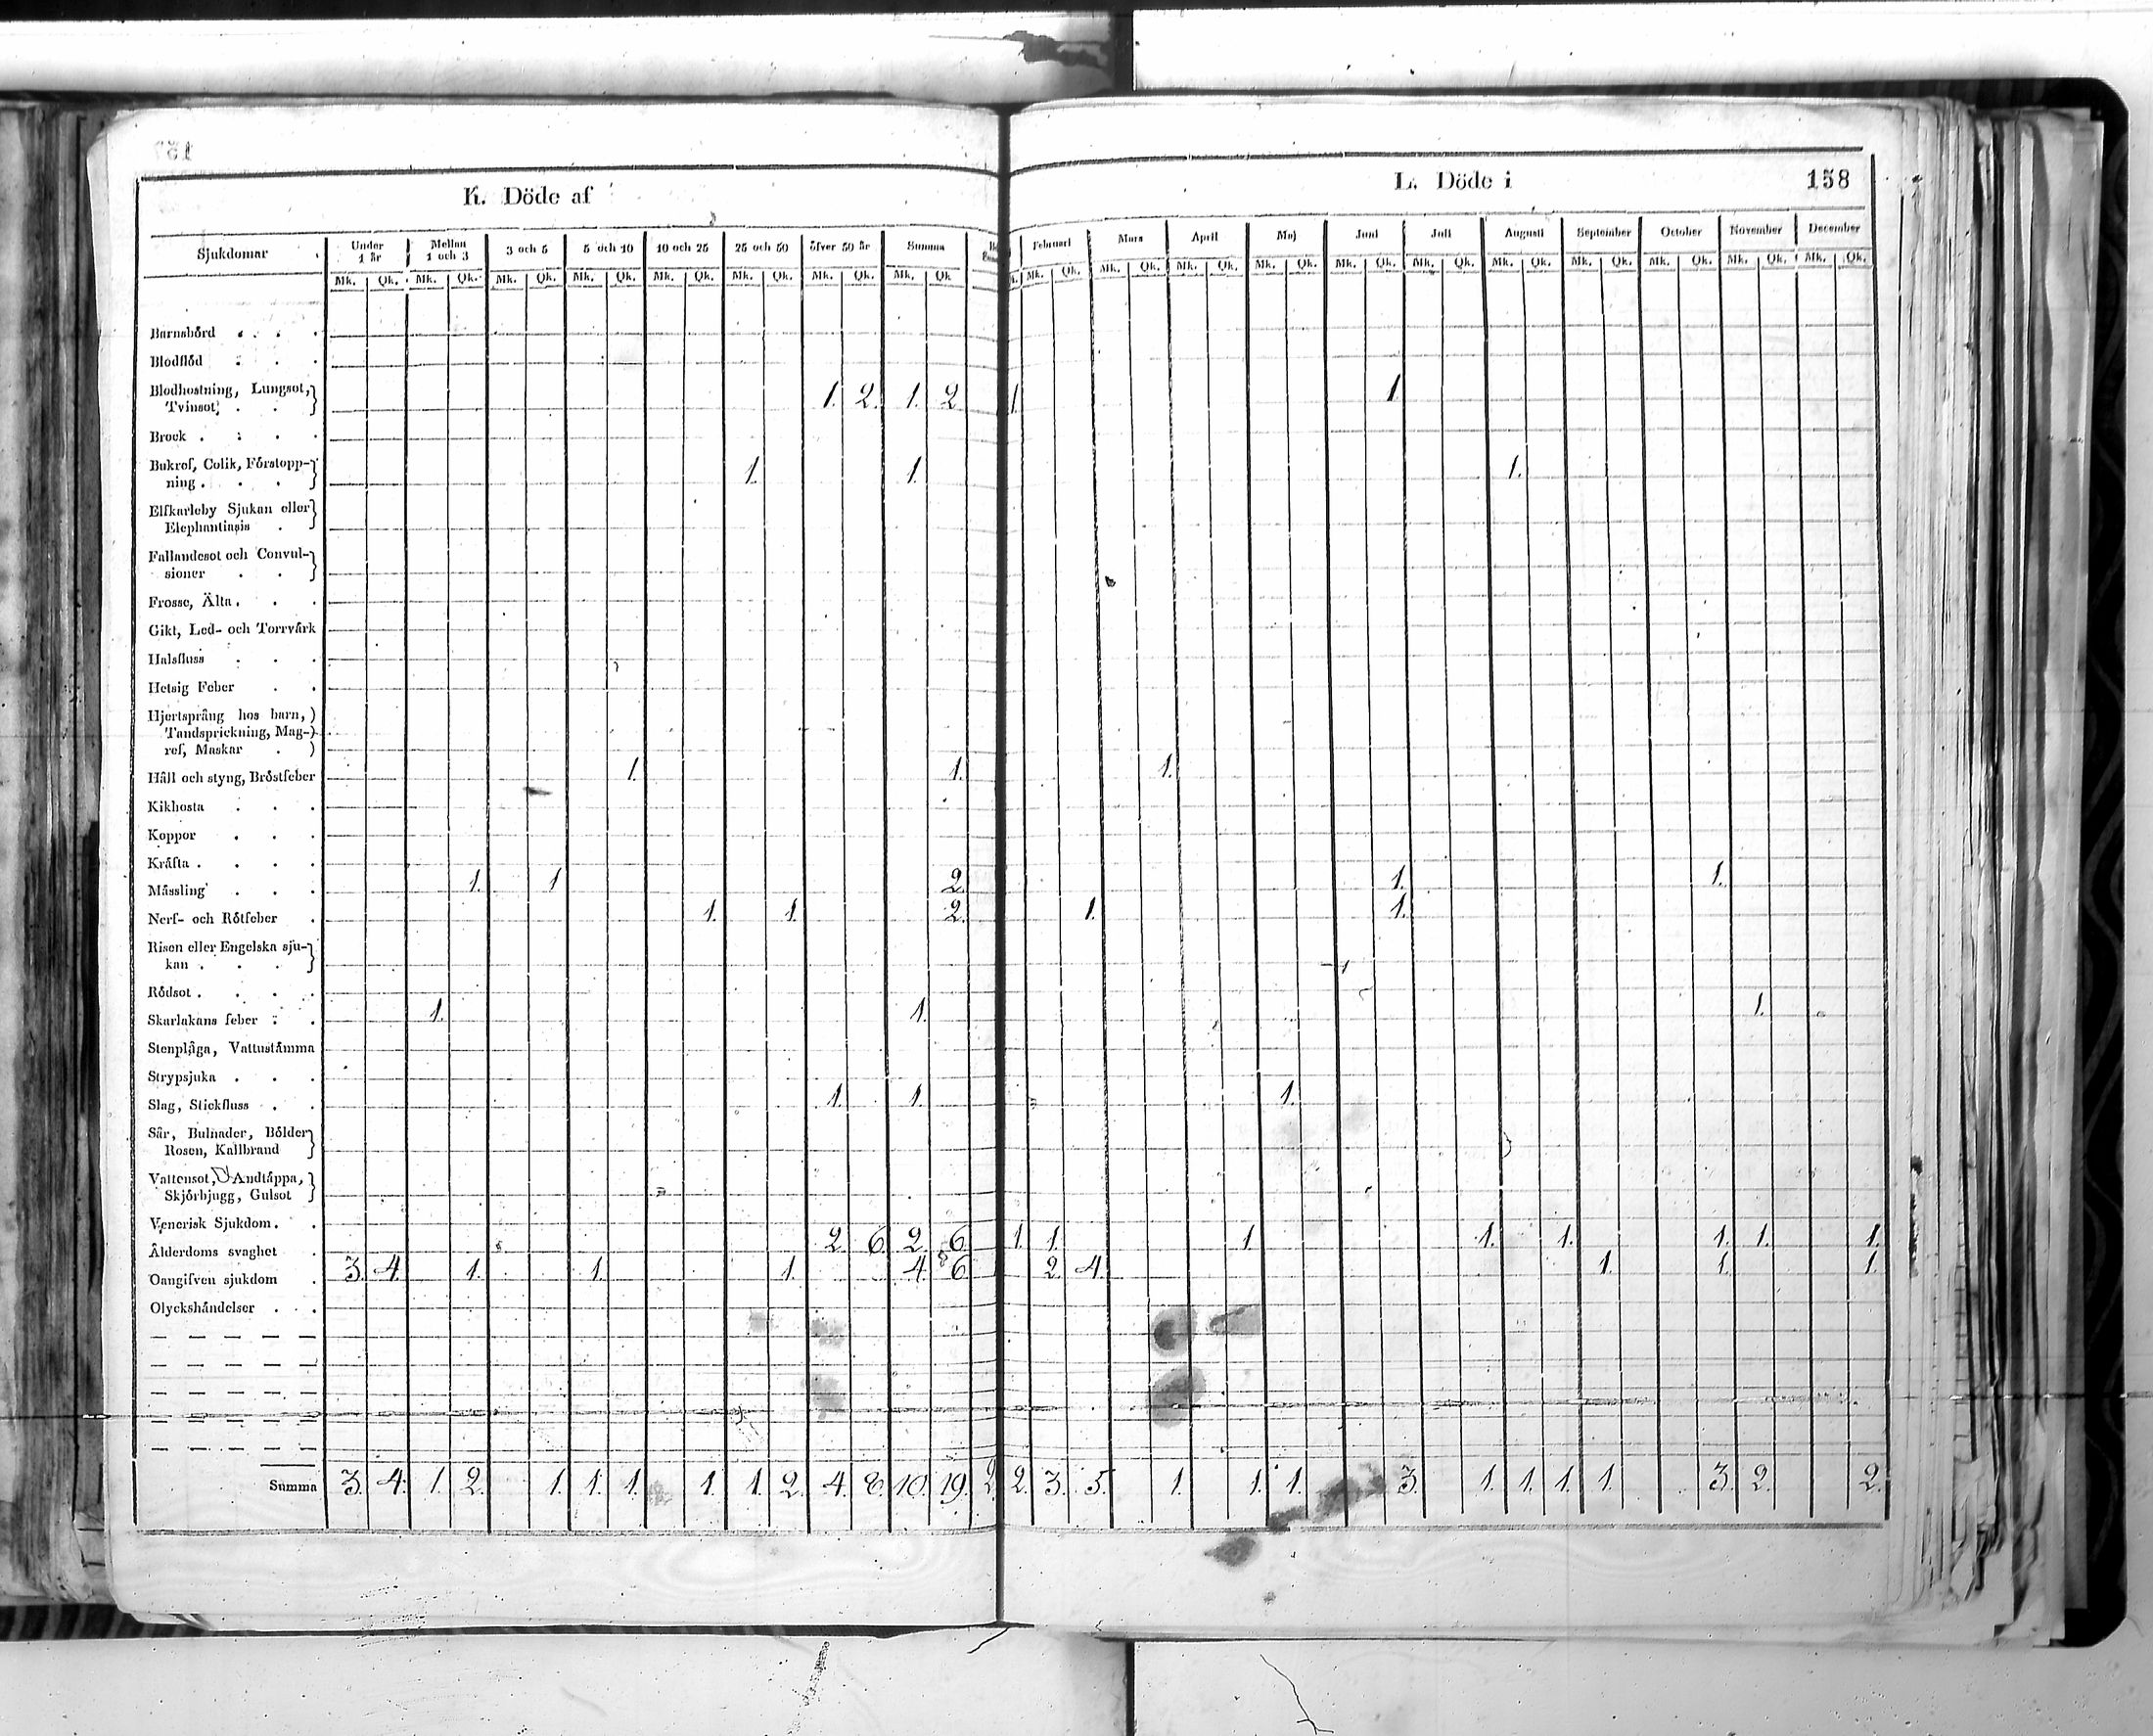 K. Döde af
L. Döde i 158
Sjukdomar Under 1 år Mellan 1 och 3 3 och 5 5 och 10 10 och 25 25 och 50 öfver 50 år Summa
Februari Mars April Maj Juni Juli Augusti September October November December
Mk. Qk. Mk. Qk. Mk. Qk. Mk. Qk. Mk. Qk. Mk. Qk. Mk. Qk. Mk. Qk
Mk. Qk. Mk. Qk. Mk. Qk. Mk. Qk. Mk. Qk. Mk. Qk. Mk. Qk. Mk. Qk. Mk. Qk. Mk. Qk. Mk. Qk.
Barnsbörd
Blodflöd
Blodhostning, Lungsot,
Tvinsot, 1. 2. 1. 2 1 1.
Brock
Bukref, Colik, Förstopp-
ning 1. 1. 1.
Elfkarleby Sjukan eller
Elephantiasis
Fallandesot och Convul-
sioner
Frossa, Älta
Gikt, Led- och Torrvärk
Halsfluss
Hetsig Feber
Hjertsprång hos barn,
Tandsprickning, Mag-
ref, Maskar
Håll och styng, Bröstfeber 1. 1. 1.
Kikhosta
Koppor
Kräfta
Mässling 1. 1 2. 1. 1.
Nerf- och Rötfeber 1. 1. 2. 1. 1.
Risen eller Engelska sju-
kan
Rödsot
Skarlakans feber 1. 1. 1.
Stenplåga, Vattustämma
Strypsjuka
Slag, Stickfluss 1. 1. 1.
Sår, Bulnader, Bölder
Rosen, Kallbrand
Vattensot, Andtäppa,
Skjörbjugg, Gulsot
Venerisk Sjukdom
Ålderdoms svaghet 2. 6. 2. 6. 1. 1. 1. 1. 1. 1. 1. 1.
Oangifven sjukdom 3. 4. 1. 1. 1. 4. 6. 2. 4. 1. 1. 1.
Olyckshändelser
Summa 3. 4. 1. 2. 1. 1. 1. 1. 1. 2. 4. 8. 10. 19. 2. 2. 3. 5. 1. 1. 1. 3. 1. 1. 1. 1. 3. 2. 2.